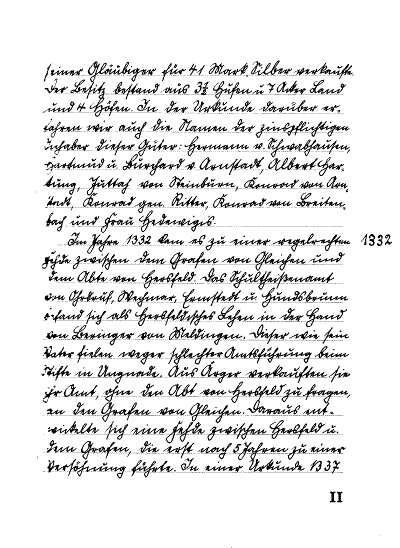 seiner Gläubiger für 41 Mark Silber verkaufte.
Der Besitz bestand aus 3½ Hufen u 7 Acker Land
und 4 Höfen. In der Urkunde darüber er-
fahren wir auch die Namen der zinspflichtigen
Inhaber dieser Güter: Hermann v. Schwabhausen,
Hartmud u. Burchard v Arnstadt, Albert Har-
tung, Juttas von Steinburn, Konrad von Arn-
stadt, Konrad gen. Ritter, Konrad von Breiten-
bach und Frau Hedewigis.
Im Jahre 1332 kam es zu einer regelrechten 1332
Fehde zwischen dem Grafen von Gleichen und
dem Abte von Hersfeld. Das Schultheißenamt
von Wechmar, Emstedt u Hundsbrunn
befand sich als Hersfeldisches Lehen in der Hand
von Beringer von Meldingen. Dieser wie sein
Vater fielen wegen schlechter Amtsführung beim
Stifte in Ungnade. Aus Ärger verkauften sie
ihr Amt, ohne den Abt von Hersfeld zu fragen,
an den Grafen von Gleichen. Daraus ent-
wickelte sich eine Fehde zwischen Hersfeld u.
dem Grafen, die erst nach 5 Jahren zu einer
Versöhnung führte. In einer Urkunde 1337
II